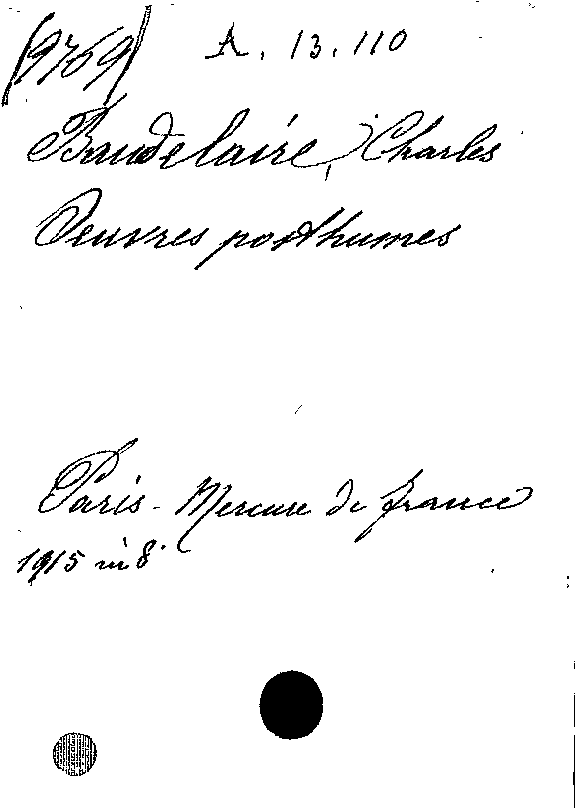 (9769) A. 13. 110
Baudelaire, Charles
Oeuvres posthumes
Paris - Mercure de france
1915 in 8°